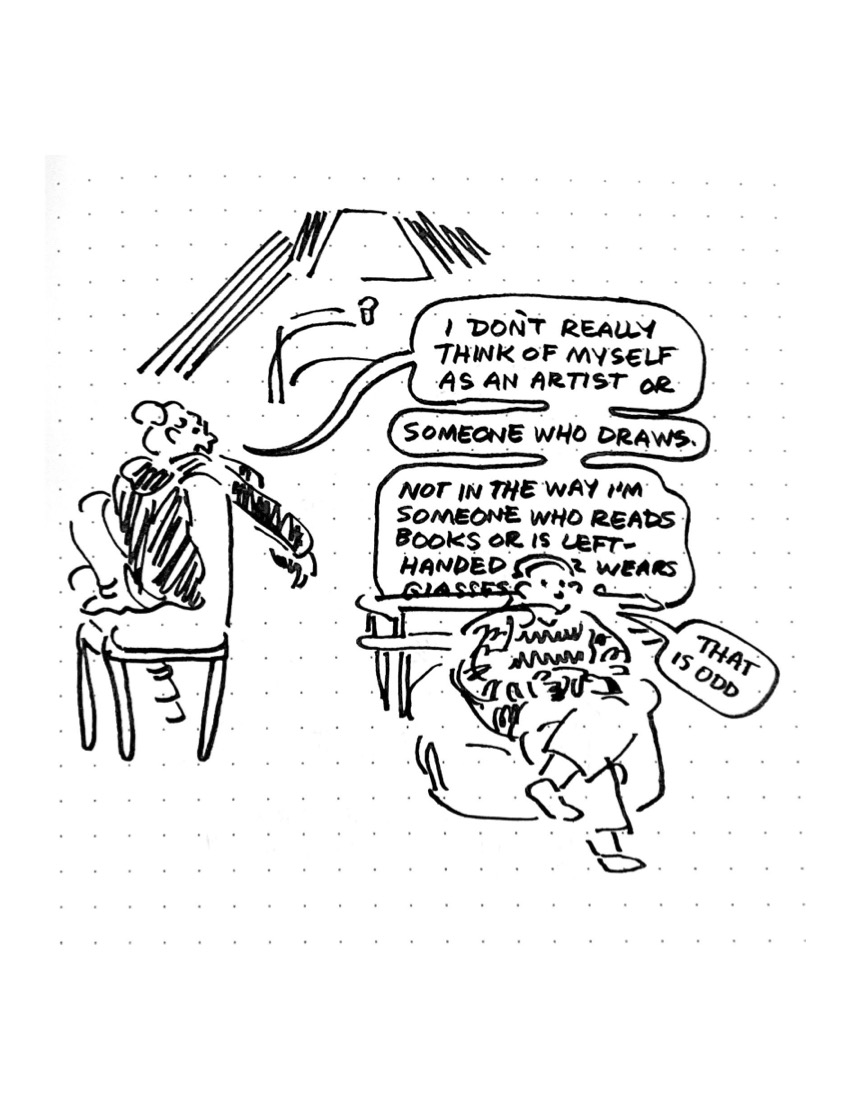 I DON'T REALLY
THINK OF MYSELF
AS AN ARTIST OR
SOMEONE WHO DRAWS.
NOT IN THE WAY I'M
SOMEONE WHO READS
BOOKS OR IS LEFT-
HANDED WEARS
GLASSES
THAT
IS ODD